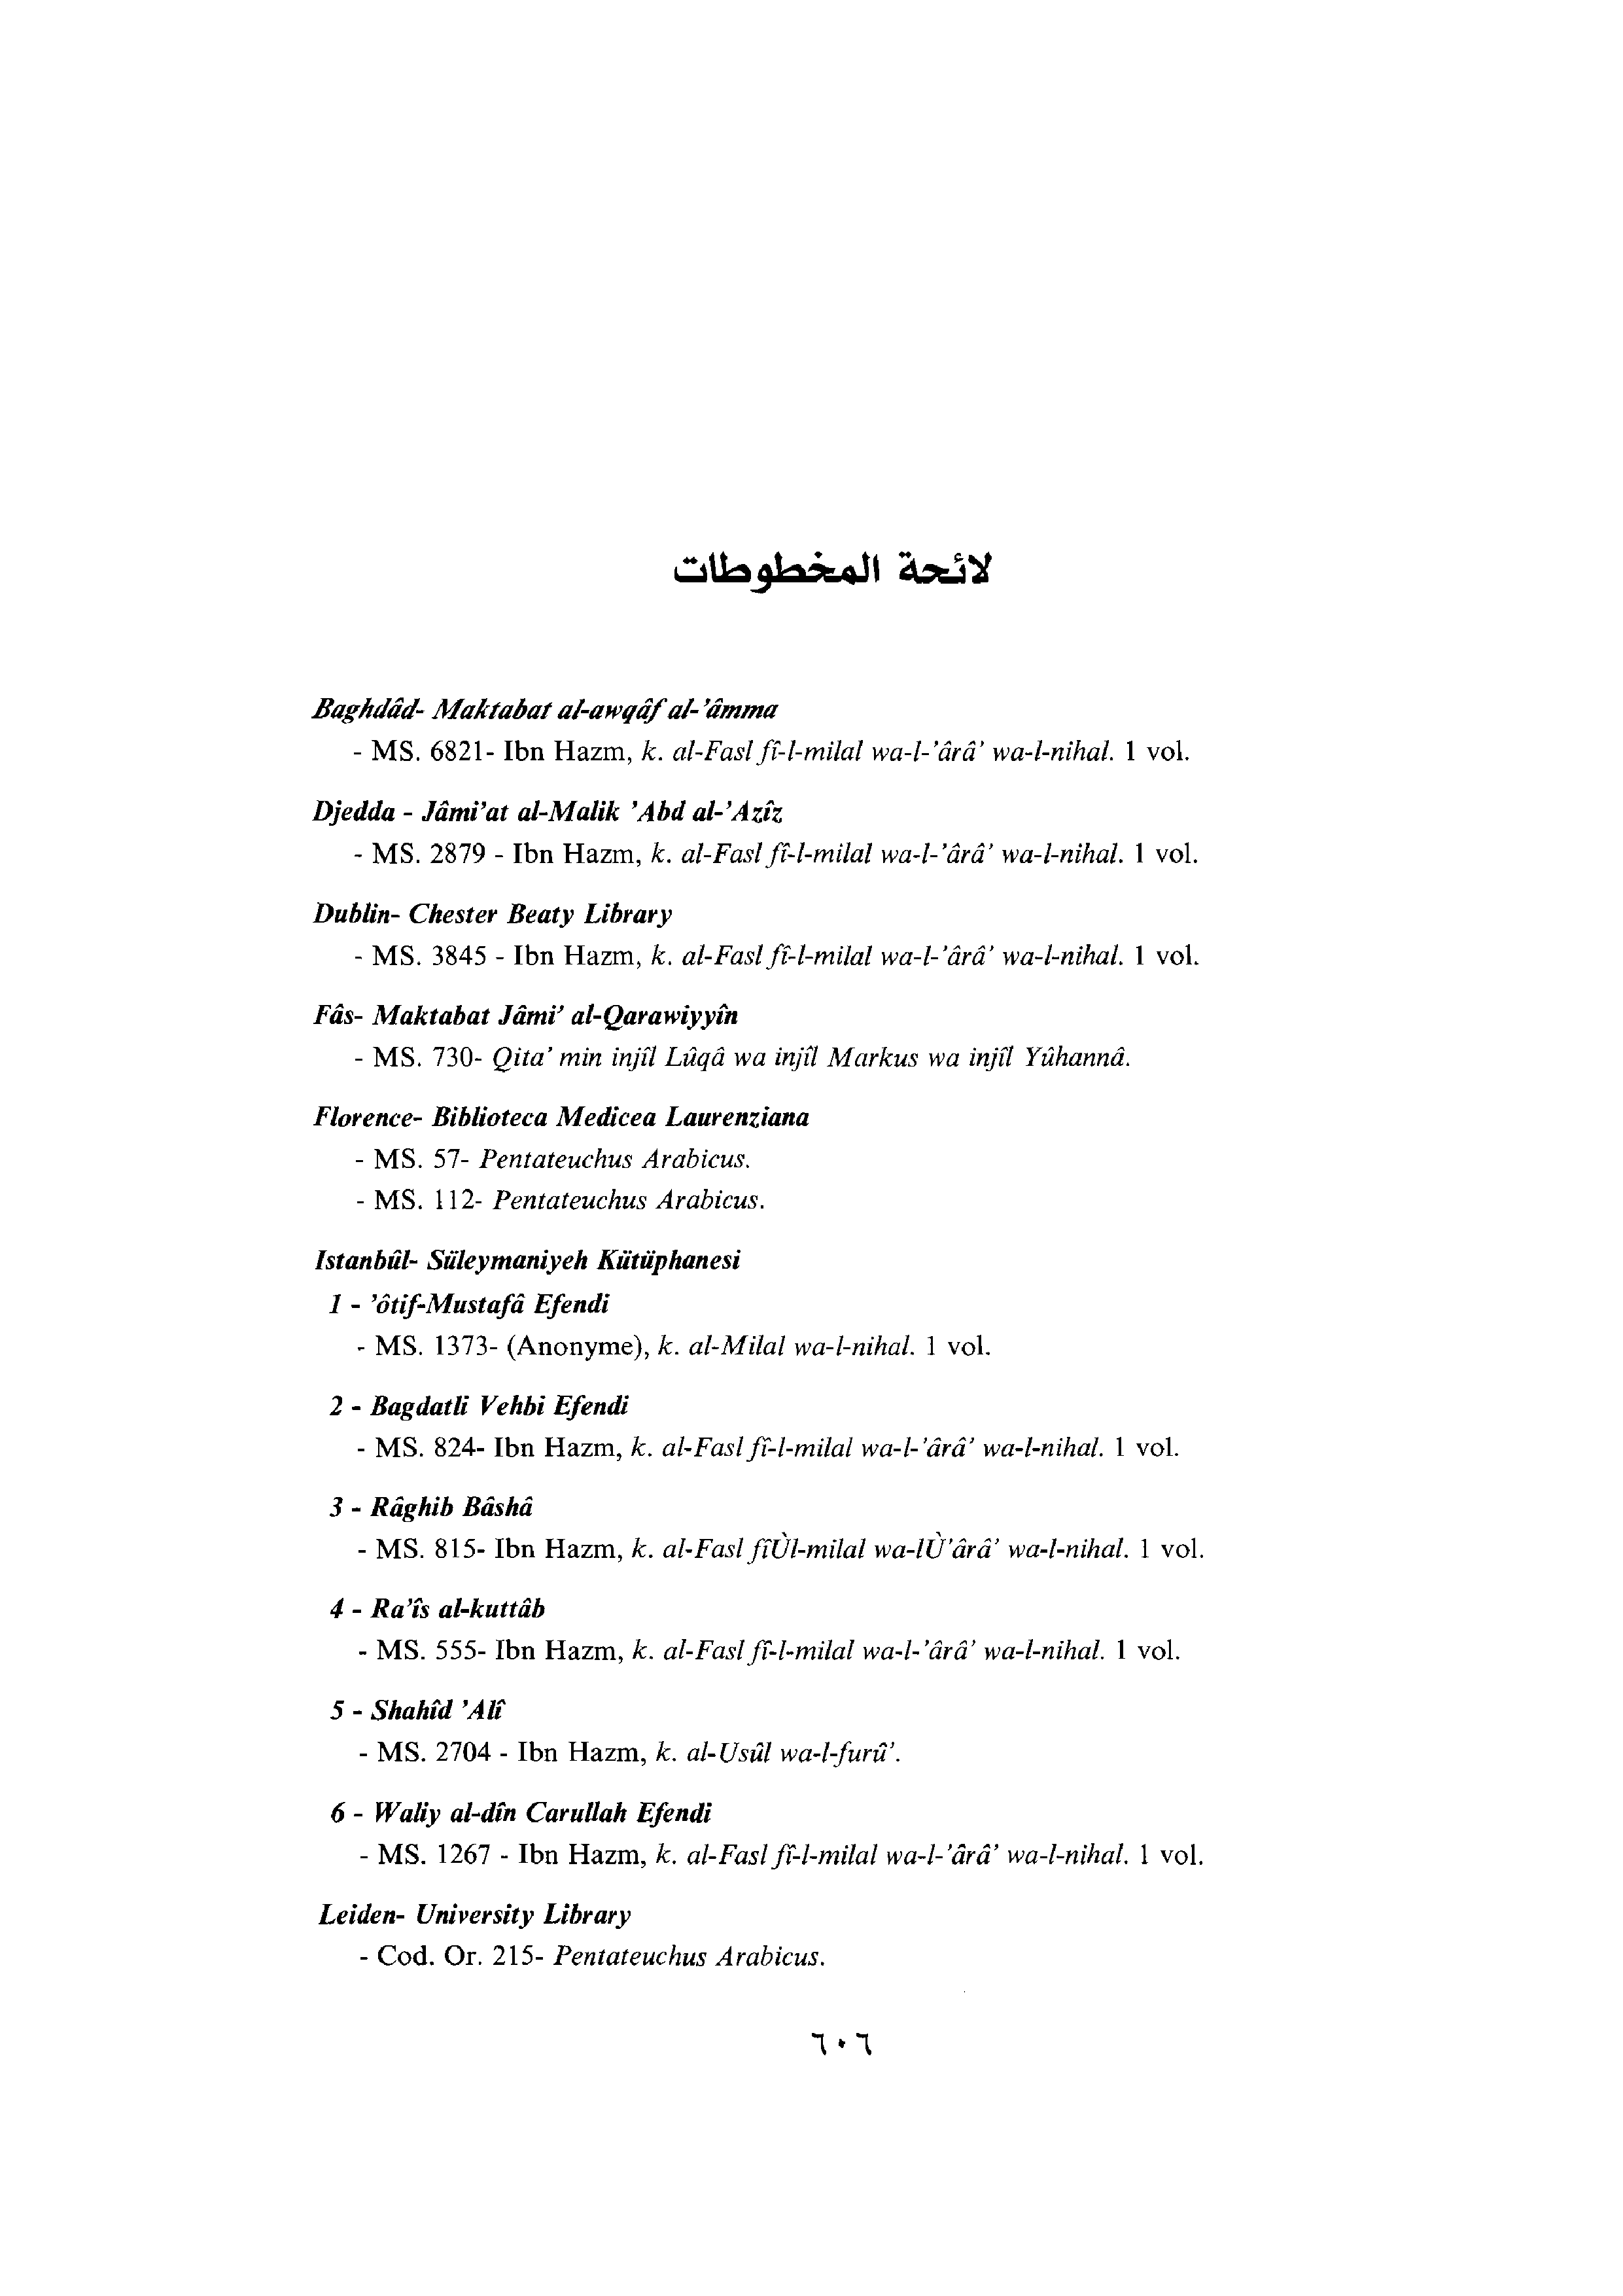 لائحة المخطوطات
Baghdâd- Maktabat al-awqâf al-'âmma
- MS. 6821- Ibn Hazm, k. al-Fasl fî-l-milal wa-l-'ârâ' wa-l-nihal. 1 vol.
Djedda - Jâmi'at al-Malik 'Abd al-'Azîz
- MS. 2879 - Ibn Hazm, k. al-Fasl fî-l-milal wa-l-'ârâ' wa-l-nihal. 1 vol.
Dublin- Chester Beaty Library
- MS. 3845 - Ibn Hazm, k. al-Fasl fî-l-milal wa-l-'ârâ' wa-l-nihal. 1 vol.
Fâs- Maktabat Jâmi' al-Qarawiyyîn
- MS. 730- Qita' min injîl Lûqâ wa injîl Markus wa injîl Yûhannâ.
Florence- Biblioteca Medicea Laurenziana
- MS. 57- Pentateuchus Arabicus.
- MS. 112- Pentateuchus Arabicus.
Istanbûl- Süleymaniyeh Kütüphanesi
1 - 'ôtif-Mustafâ Efendi
- MS. 1373- (Anonyme), k. al-Milal wa-l-nihal. 1 vol.
2 - Bagdatli Vehbi Efendi
- MS. 824- Ibn Hazm, k. al-Fasl fî-l-milal wa-l-'ârâ' wa-l-nihal. 1 vol.
3 - Râghib Bâshâ
- MS. 815- Ibn Hazm, k. al-Fasl fîÙl-milal wa-lÙ'ârâ' wa-l-nihal. 1 vol.
4 - Ra'îs al-kuttâb
- MS. 555- Ibn Hazm, k. al-Fasl fî-l-milal wa-l-'ârâ' wa-l-nihal. 1 vol.
5 - Shahîd 'Alî
- MS. 2704 - Ibn Hazm, k. al-Usûl wa-l-furû'.
6 - Waliy al-dîn Carullah Efendi
- MS. 1267 - Ibn Hazm, k. al-Fasl fî-l-milal wa-l-'ârâ' wa-l-nihal. 1 vol.
Leiden- University Library
- Cod. Or. 215- Pentateuchus Arabicus.
٦٠٦